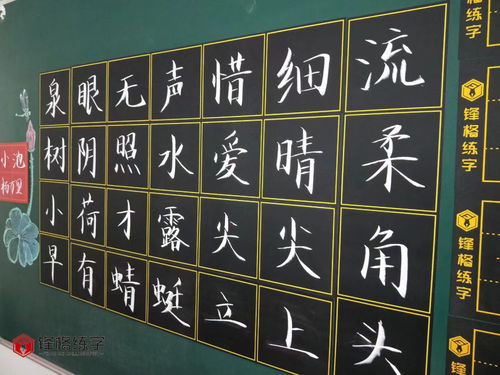 泉眼无声惜细流
树阴照水爱晴柔
小荷才露尖尖角
早有蜻蜓立上头
小池
锋格练字
锋格练字
锋格练字
锋格练字